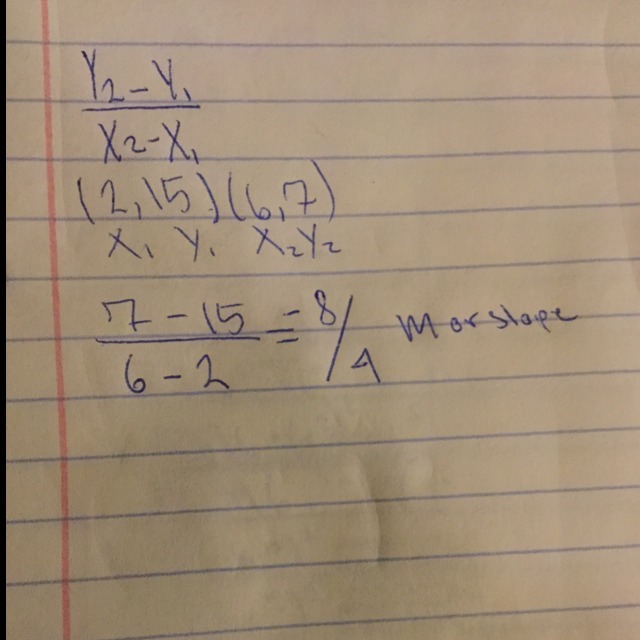 Y₂-Y₁
X₂-X₁
(2,15)(6,7)
X₁ Y₁ X₂Y₂
7-15 = 8/4 M or slope
6-2